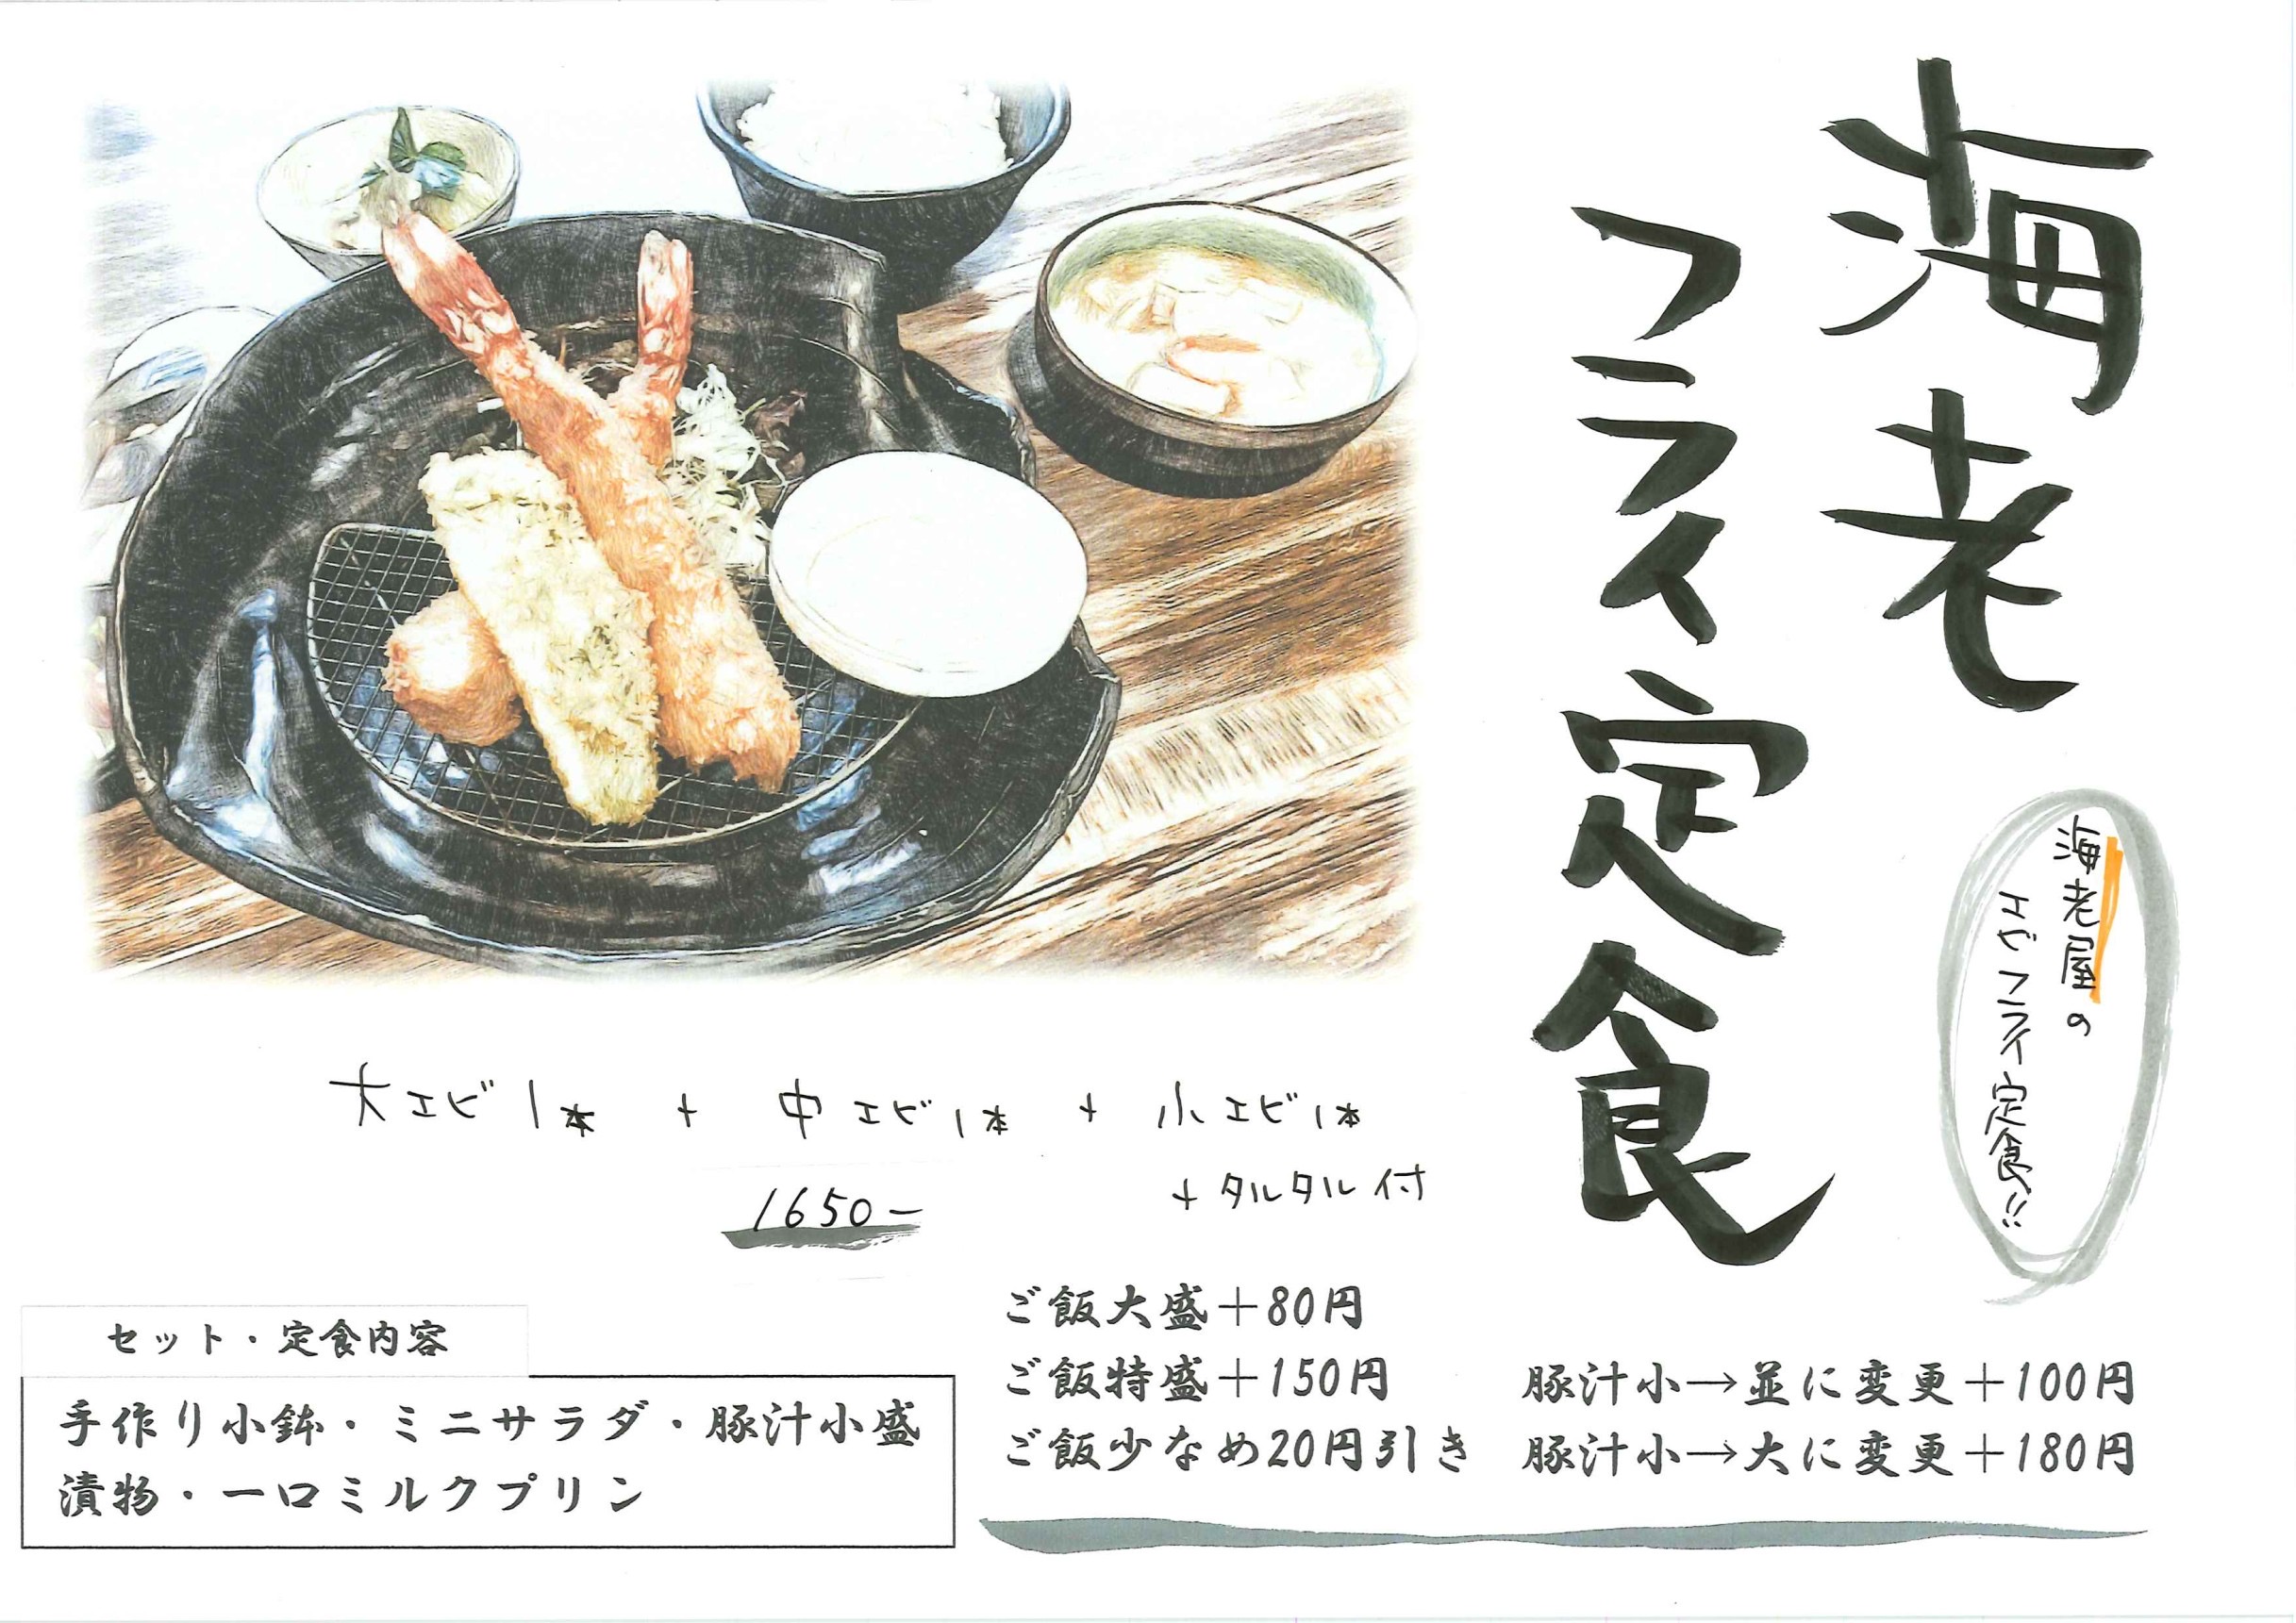 海老
フライ定食
海老屋の
エビフライ定食!!
大エビ1本 + 中エビ1本 + 小エビ1本
+タルタル付
1650-
セット・定食内容
手作り小鉢・ミニサラダ・豚汁小盛
漬物・一口ミルクプリン
ご飯大盛＋80円
ご飯特盛＋150円
ご飯少なめ20円引き
豚汁小→並に変更＋100円
豚汁小→大に変更＋180円